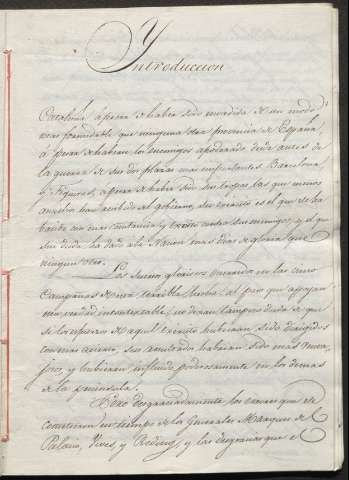 Introduccion
Cataluña á pesar de haber sido invadida de un modo
mas formidable que ninguna otra provincia de España,
á pesar de haberse los enemigos apoderado desde antes de
la guerra de sus dos plazas mas importantes Barcelona
y Figueras, á pesar de haber sido sus tropas las que menos
auxilios han recibido del gobierno, su exercito es el que se ha
batido con mas constancia y exito contra sus enemigos, y el que
sin duda ha dado á la Nacion mas dias de gloria que
ningun otro.
Los sucesos gloriosos en las cinco
Campañas de esta terrible lucha al paso que apoyan
esta verdad incontextable, no dexan tampoco duda de que
si los esfuerzos de aquel exercito hubieran sido dirigidos
con mas acierto, sus resultados habrian sido mas venta-
josos, y hubieran influido poderosamente en los demas
de la peninsula.
Pero desgraciadamente los errores que se
cometieron en tiempo de los Generales Marques del
Palacio, Vives, y Reding, y las desgracias que